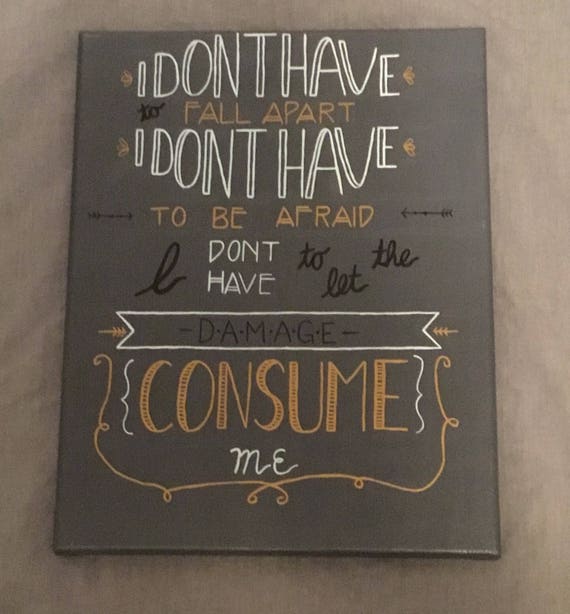 I DONT HAVE
to FALL APART
I DONT HAVE
TO BE AFRAID
I DONT HAVE to let the
-D·A·M·A·G·E-
{CONSUME}
ME